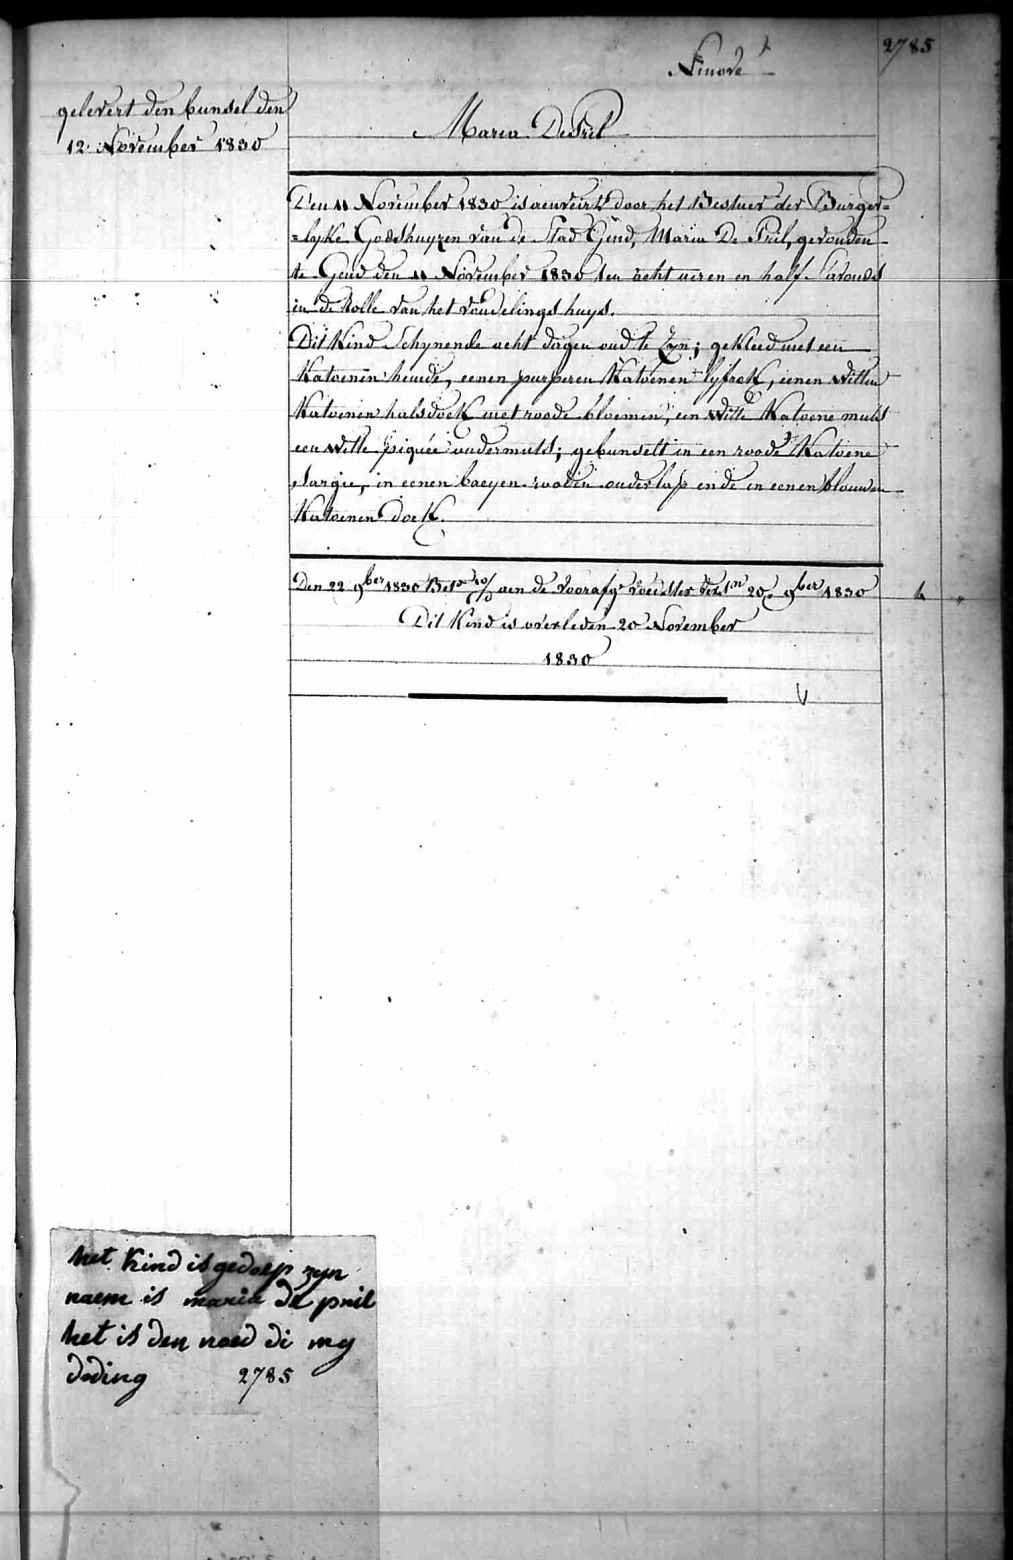 2785
gelevert den bunsel den
12 November 1830
Maria De Pril
Den 11 November 1830 is aenveirt door het Bestuer der Burger=
=lyke Godshuyzen van de Stad Gend, Maria De Pril, gevonden
te Gend den 11 November 1830 ten acht uren en half s'avonds
in de Rolle van het vondelings huys.
Dit Kind Schynende acht dagen oud te Zyn; gekleed met een
Katoenen hemde, eenen purperen Katoenen lyfrok, eenen witten
Katoenen halsdoek met roode bloemen, een witte Katoene muts
een witte piquée ondermuts; gebunselt in een roode Katoene
sargie, in eenen baeyen rooden onderlap ende in eenen blauwen
Katoenen doek.
Den 22 9ber 1830 aen de voorafge voedster 20 9ber 1830
Dit Kind is overleden 20 November
1830
het kind is gedoep zyn
naem is maria de pril
het is den noed di my
doding 2785